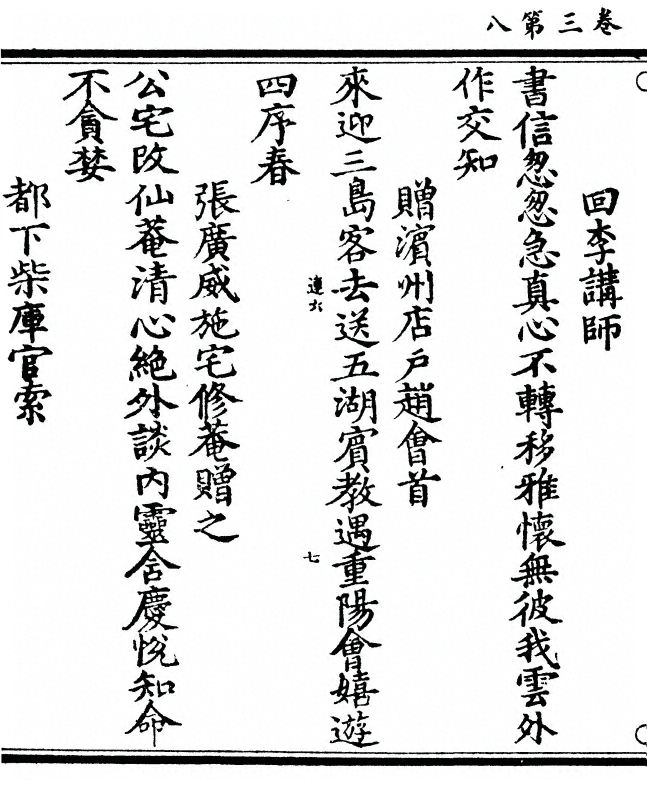 卷三第八
回李講師
書信怱怱急真心不轉移雅懷無彼我雲外
作交知
贈濱州店戶趙會首
來迎三島客去送五湖賓教遇重陽會嬉遊
四序春
連六
七
張廣威施宅修菴贈之
公宅改仙菴清心絕外談內靈含慶悅知命
不貪婪
都下柴庫官索